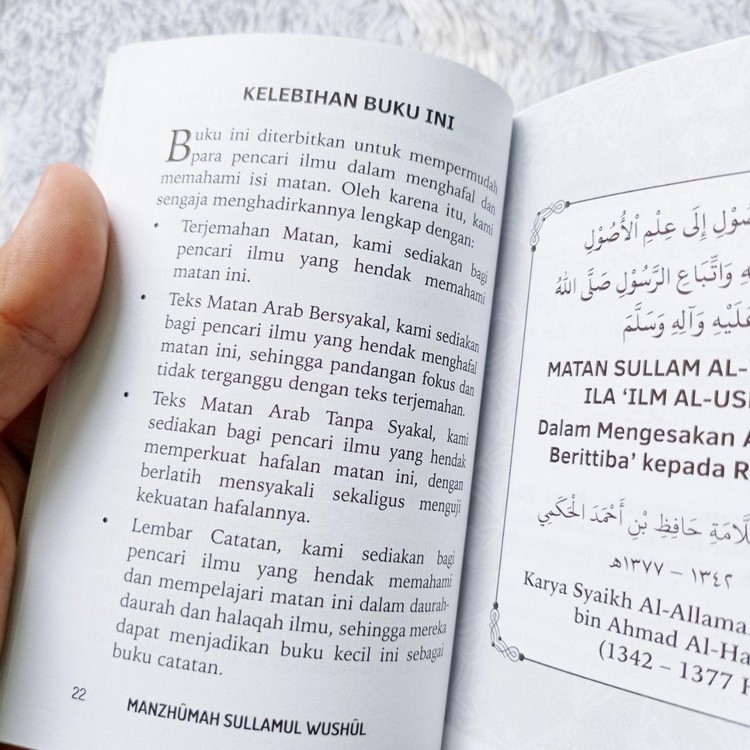 KELEBIHAN BUKU INI
Buku ini diterbitkan untuk mempermudah
para pencari ilmu dalam menghafal dan
memahami isi matan. Oleh karena itu, kami
sengaja menghadirkannya lengkap dengan:
• Terjemahan Matan, kami sediakan bagi
pencari ilmu yang hendak memahami
matan ini.
• Teks Matan Arab Bersyakal, kami sediakan
bagi pencari ilmu yang hendak menghafal
matan ini, sehingga pandangan fokus dan
tidak terganggu dengan teks terjemahan.
• Teks Matan Arab Tanpa Syakal, kami
sediakan bagi pencari ilmu yang hendak
memperkuat hafalan matan ini, dengan
berlatih mensyakali sekaligus menguji
kekuatan hafalannya.
• Lembar Catatan, kami sediakan bagi
pencari ilmu yang hendak memahami
dan mempelajari matan ini dalam daurah-
daurah dan halaqah ilmu, sehingga mereka
dapat menjadikan buku kecil ini sebagai
buku catatan.
22
MANZHÛMAH SULLAMUL WUSHÛL
إِلَى عِلْمِ الْأُصُوْلِ
وَاتِّبَاعِ الرَّسُوْلِ صَلَّى اللهُ
عَلَيْهِ وَآلِهِ وَسَلَّمَ
MATAN SULLAM AL-
ILA ‘ILM AL-
Dalam Mengesakan
Berittiba’ kepada
حَافِظِ بْنِ أَحْمَدَ الْحَكَمِي
١٣٤٢ – ١٣٧٧هـ
Karya Syaikh Al-
bin Ahmad Al-
(1342 – 1377